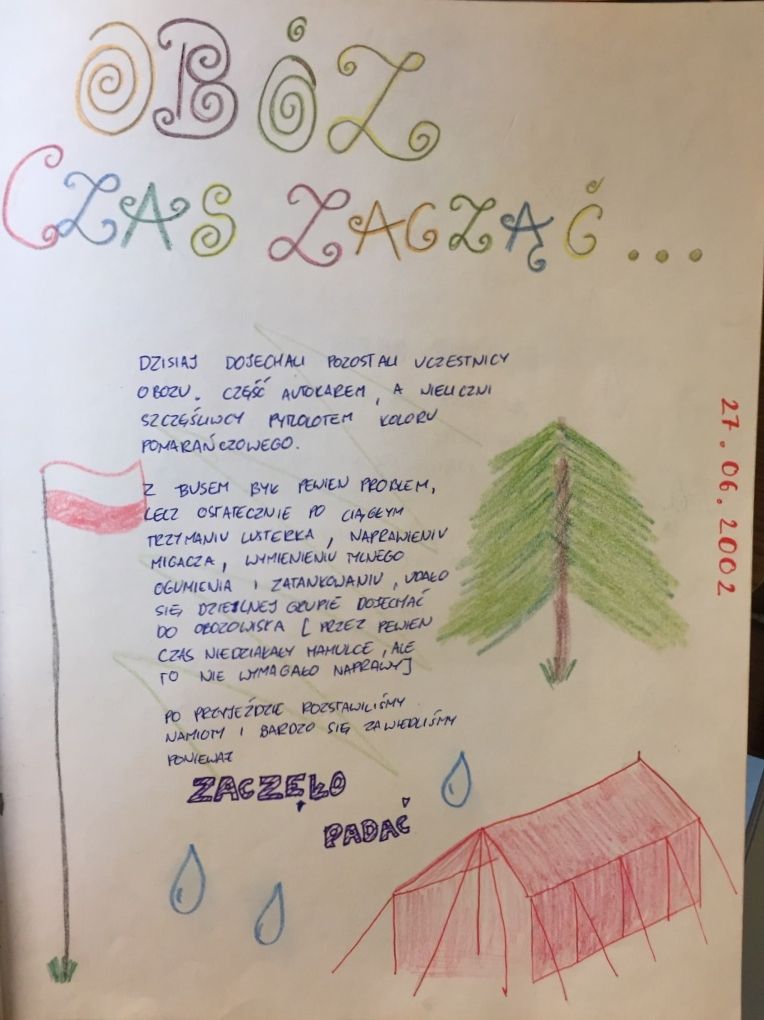 OBÓZ
CZAS ZACZĄĆ...
27.06.2002
DZISIAJ DOJECHALI POZOSTALI UCZESTNICY
OBOZU. CZĘŚĆ AUTOKAREM, A NIELICZNI
SZCZĘŚLIWCY PYTLOLOTEM KOLORU
POMARAŃCZOWEGO.
Z BUSEM BYŁ PEWIEN PROBLEM,
LECZ OSTATECZNIE PO CIĄGŁYM
TRZYMANIU LUSTERKA, NAPRAWIENIU
MIGACZA, WYMIENIENIU TYLNEGO
OGUMIENIA I ZATANKOWANIU, UDAŁO
SIĘ DZIELNEJ GRUPIE DOJECHAĆ
DO OBOZOWISKA [PRZEZ PEWIEN
CZAS NIEDZIAŁAŁY HAMULCE, ALE
TO NIE WYMAGAŁO NAPRAWY]
PO PRZYJEŹDZIE ROZSTAWILIŚMY
NAMIOTY I BARDZO SIĘ ZAWIEDLIŚMY
PONIEWAŻ
ZACZĘŁO
PADAĆ